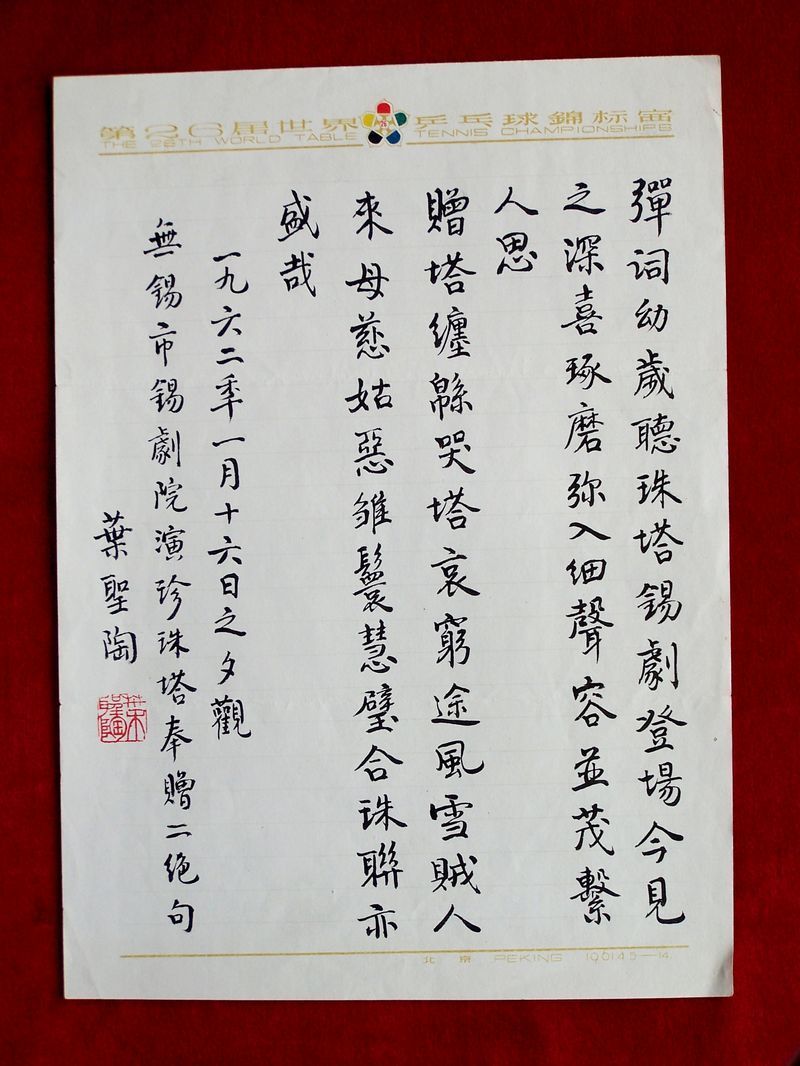 第26届世界乒乓球錦标宙
THE 26TH WORLD TABLE TENNIS CHAMPIONSHIPS
彈詞幼歲聽珠塔錫劇登場今見
之深喜琢磨弥入細聲容並茂繫
人思
贈塔纏緜哭塔哀窮途風雪賊人
來母慈姑惡雛鬟慧璧合珠聯亦
盛哉
一九六二季一月十六日之夕觀
無錫市錫劇院演珍珠塔奉贈二絕句
葉聖陶
葉聖陶
北京 PEKING 100145—14